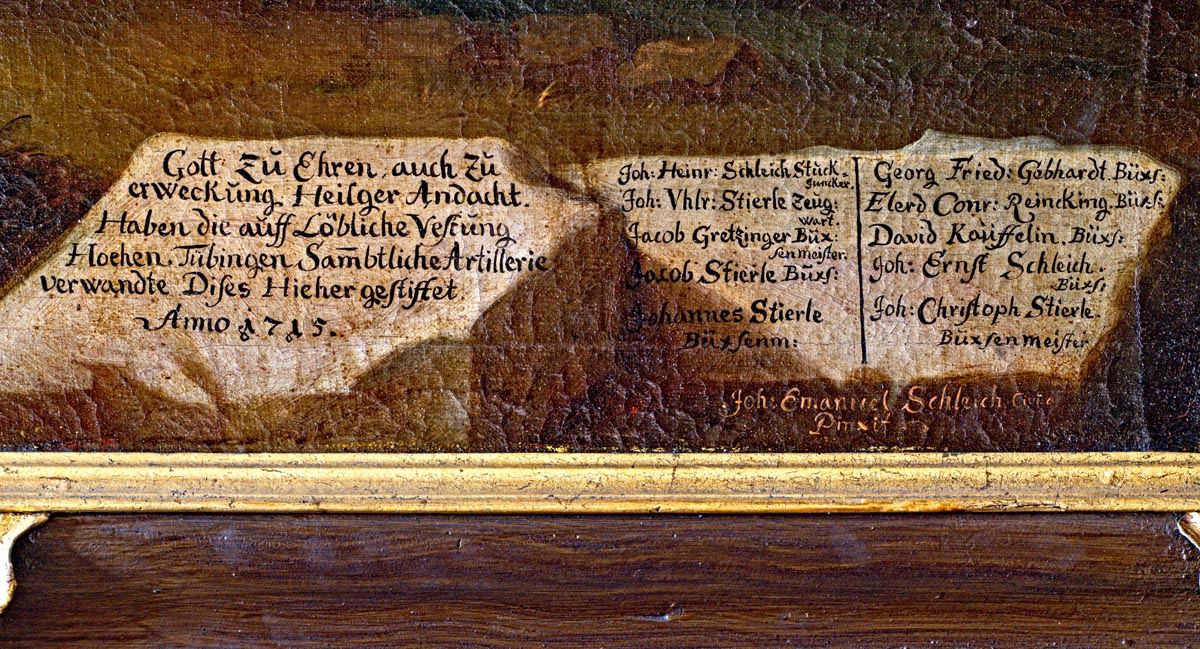 Gott Zŭ Ehren, auch Zŭ
erweckŭng Heilger Andacht.
Haben die aŭff Löbliche Vestŭng
Hoehen, Tübingen Sam̃btliche Artillerie
verwandte Dises Hieher gestifftet.
Anno 1715.
Joh: Heinr: Schleich Stŭck-
Juncker.
Joh: Vhlr: Stierle Zeug:
wart.
Jacob Gretzinger Büx:
senmeister.
Jacob Stierle Büxs:
Johannes Stierle
Büxsenm:
Georg Fried: Gebhardt. Büxs:
Elerd Conr: Reincking. Büxs:
David Kaŭffelin. Büxs:
Joh: Ernst Schleich.
Büxs:
Joh: Christoph Stierle.
Büxsenmeister
Joh: Emanuel Schleich
Pinxit